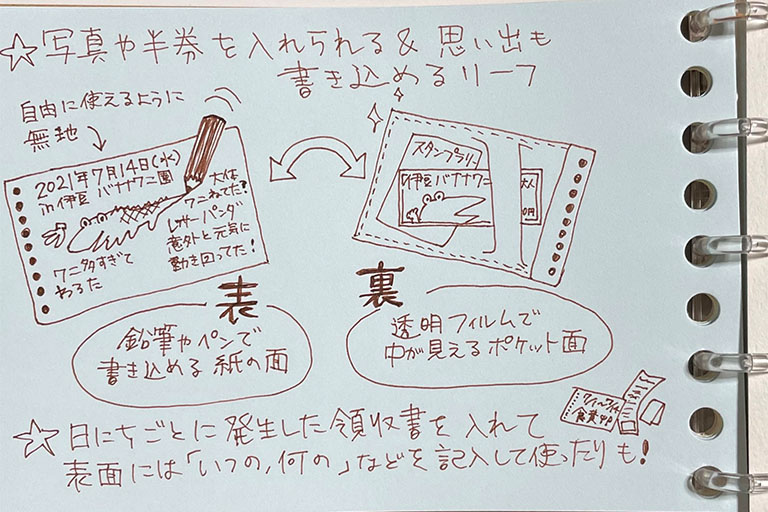 ☆写真や半券を入れられる&思い出も
書き込めるリーフ
自由に使えるように
無地
2021年7月14日(水)
in 伊豆 バナナワニ園
大体
ワニねてた?
レッサーパンダ
意外と元気に
動き回ってた!
ワニ多すぎて
わろた
スタンプラリー
伊豆バナナワニ
大人
0円
表
鉛筆やペンで
書き込める紙の面
裏
透明フィルムで
中が見えるポケット面
食費
☆日にちごとに発生した領収書を入れて
表面には「いつの,何の」などを記入して使ったりも!